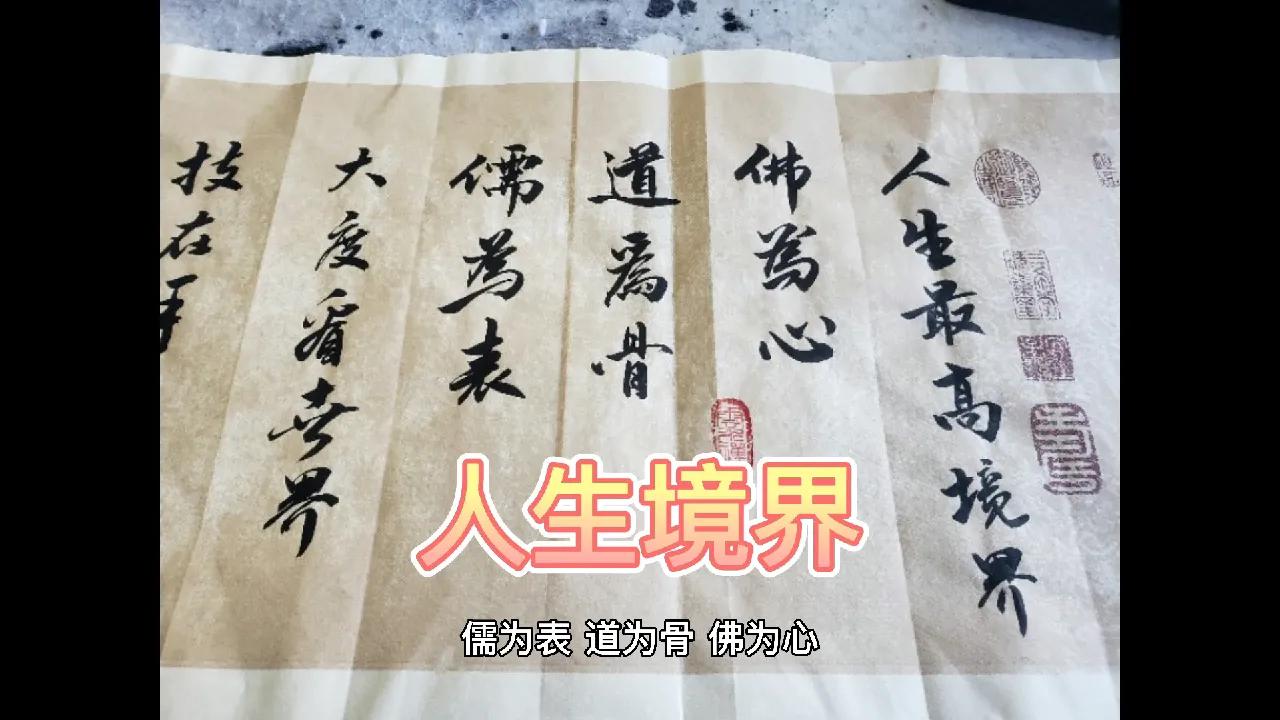 人生最高境界
佛為心
道爲骨
儒為表
大度看世界
技在手
人生境界
儒为表 道为骨 佛为心